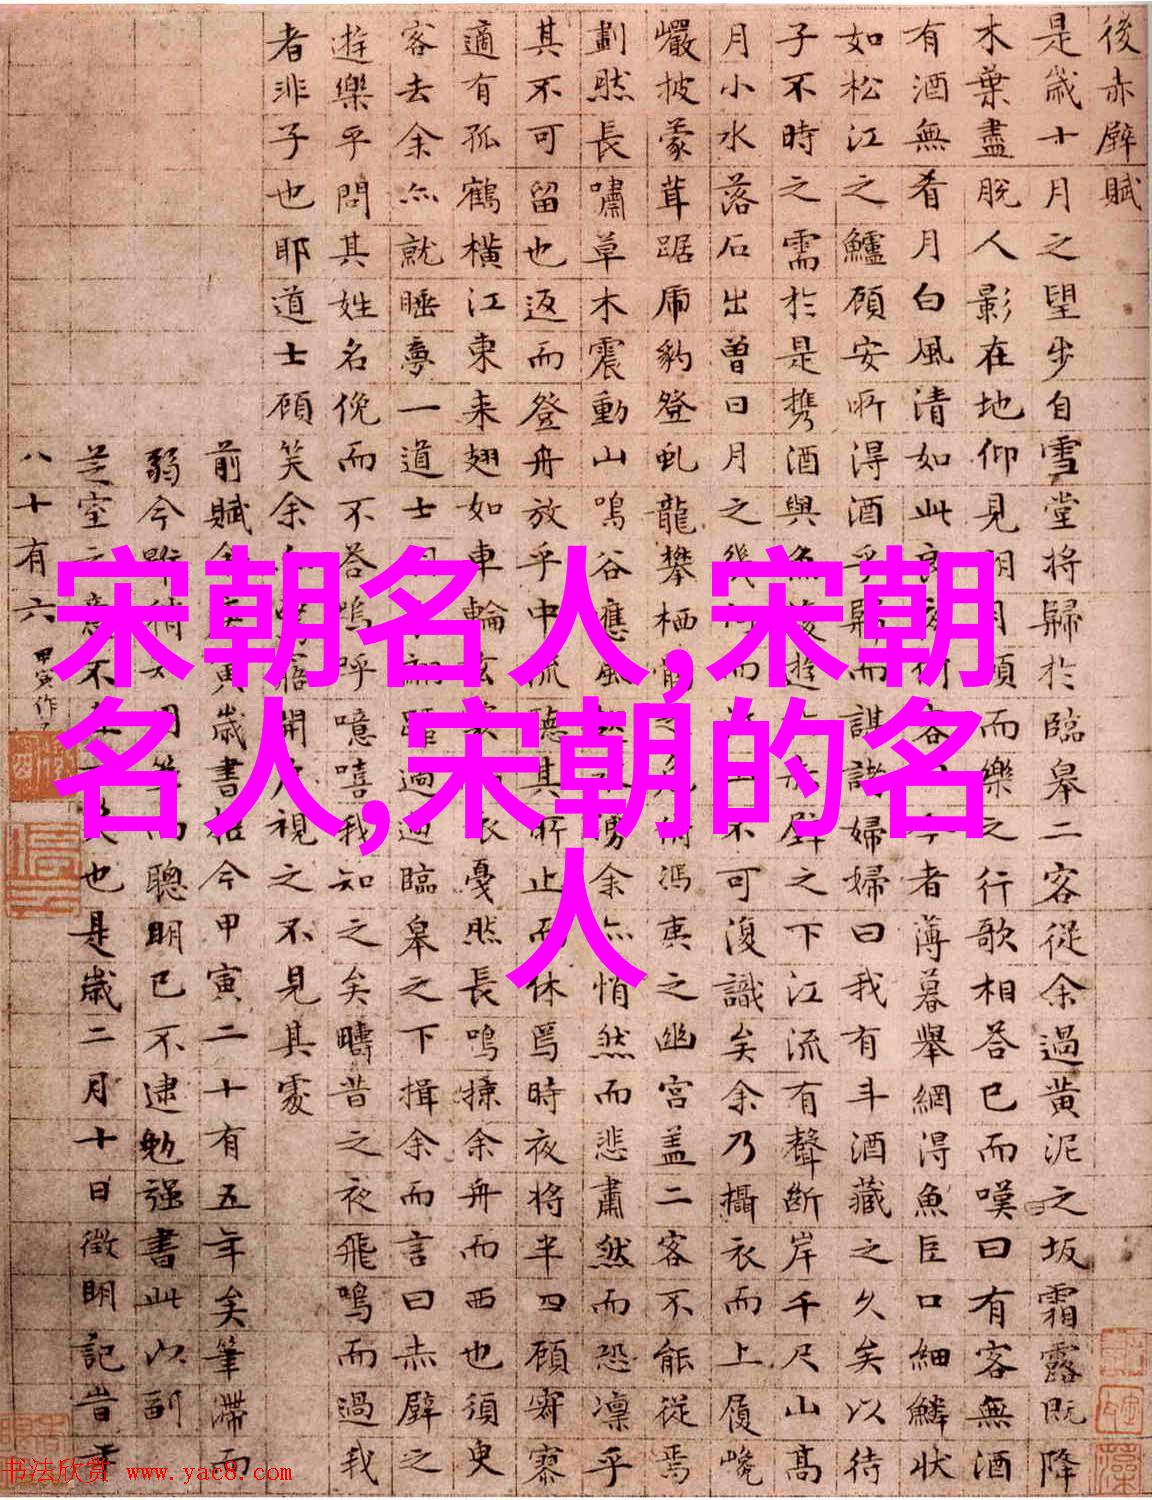 後赤壁賦
是歲十月之望步自雪堂將歸於臨皋二客從余過黃泥之坂霜露既降
木葉盡脫人影在地仰見明月顧而樂之行歌相答已而嘆曰有客無酒
有酒無肴月白風清如此良夜何客曰今者薄暮舉網得魚巨口細鱗狀
如松江之鱸顧安所得酒乎歸而謀諸婦婦曰我有斗酒藏之久矣以待
子不時之需於是攜酒與魚復遊於赤壁之下江流有聲斷岸千尺山高
月小水落石出曾日月之幾何而江山不可復識矣余乃攝衣而上履巉
巖披蒙茸踞虎豹登虬龍攀栖鶻之危俯馮夷之幽宮蓋二客不能從焉
劃然長嘯草木震動山鳴谷應風起水湧余亦悄然而悲肅然而恐凜乎
其不可留也返而登舟放乎中流聽其所止而休焉時夜將半四顧寂寥
適有孤鶴橫江東來翅如車輪玄裳縞衣戛然長鳴掠余舟而西也須臾
客去余亦就睡夢一道士翩躚過臨皋之下揖余而言曰赤壁之
遊樂乎問其姓名俛而不答嗚呼噫嘻我知之矣疇昔之夜飛鳴而過我
者非子也耶道士顧笑余亦驚寤開戶視之不見其處
前賦余庚寅歲書抵今甲寅二十有五年矣筆滯而
弱今所聰明已不逮勉強書此以副
芝室之意不也是歲二月十日徵明記昔年
八十有六
宋朝名人,宋朝
名人,宋朝的名
人
书法欣赏 www.yac8.com